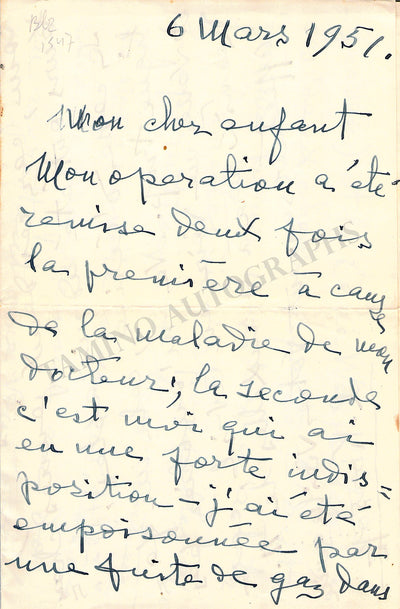 6 Mars 1951.
Mon cher enfant
Mon operation a été
remise deux fois
la première à cause
de la maladie de mon
docteur; la seconde
c'est moi qui ai
eu une forte indis=
position – j'ai été
empoisonnée par
une fuite de gaz dans
TAMINO AUTOGRAPHS